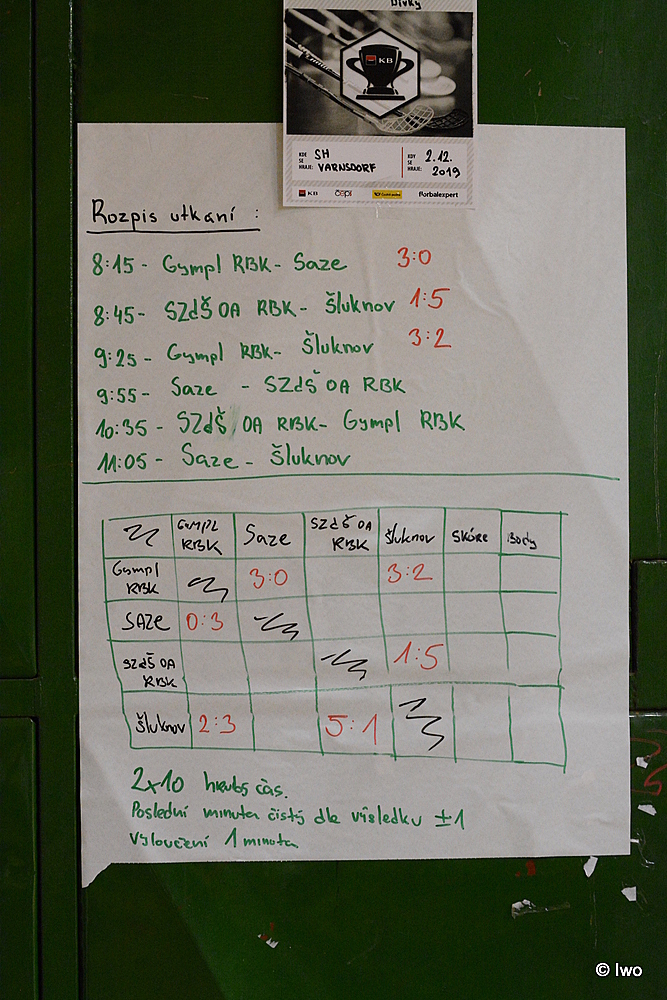 Dívky
KB
KDE SE HRAJE: SH VARNSDORF
KDY SE HRAJE: 2.12. 2019
KB čeps florbalexpert
Rozpis utkání :
8:15 - Gympl RBK - Saze 3:0
8:45 - SZdŠ OA RBK - Šluknov 1:5
9:25 - Gympl RBK - Šluknov 3:2
9:55 - Saze - SZdŠ OA RBK
10:35 - SZdŠ OA RBK - Gympl RBK
11:05 - Saze - Šluknov
GYMPL RBK Saze SZdŠ OA RBK Šluknov SKÓRE Body
Gympl RBK 3:0 3:2
SAZE 0:3
SZdŠ OA RBK 1:5
Šluknov 2:3 5:1
2x10 hrubý čas.
Poslední minuta čistý dle výsledku ±1
Vyloučení 1 minuta
© Iwo